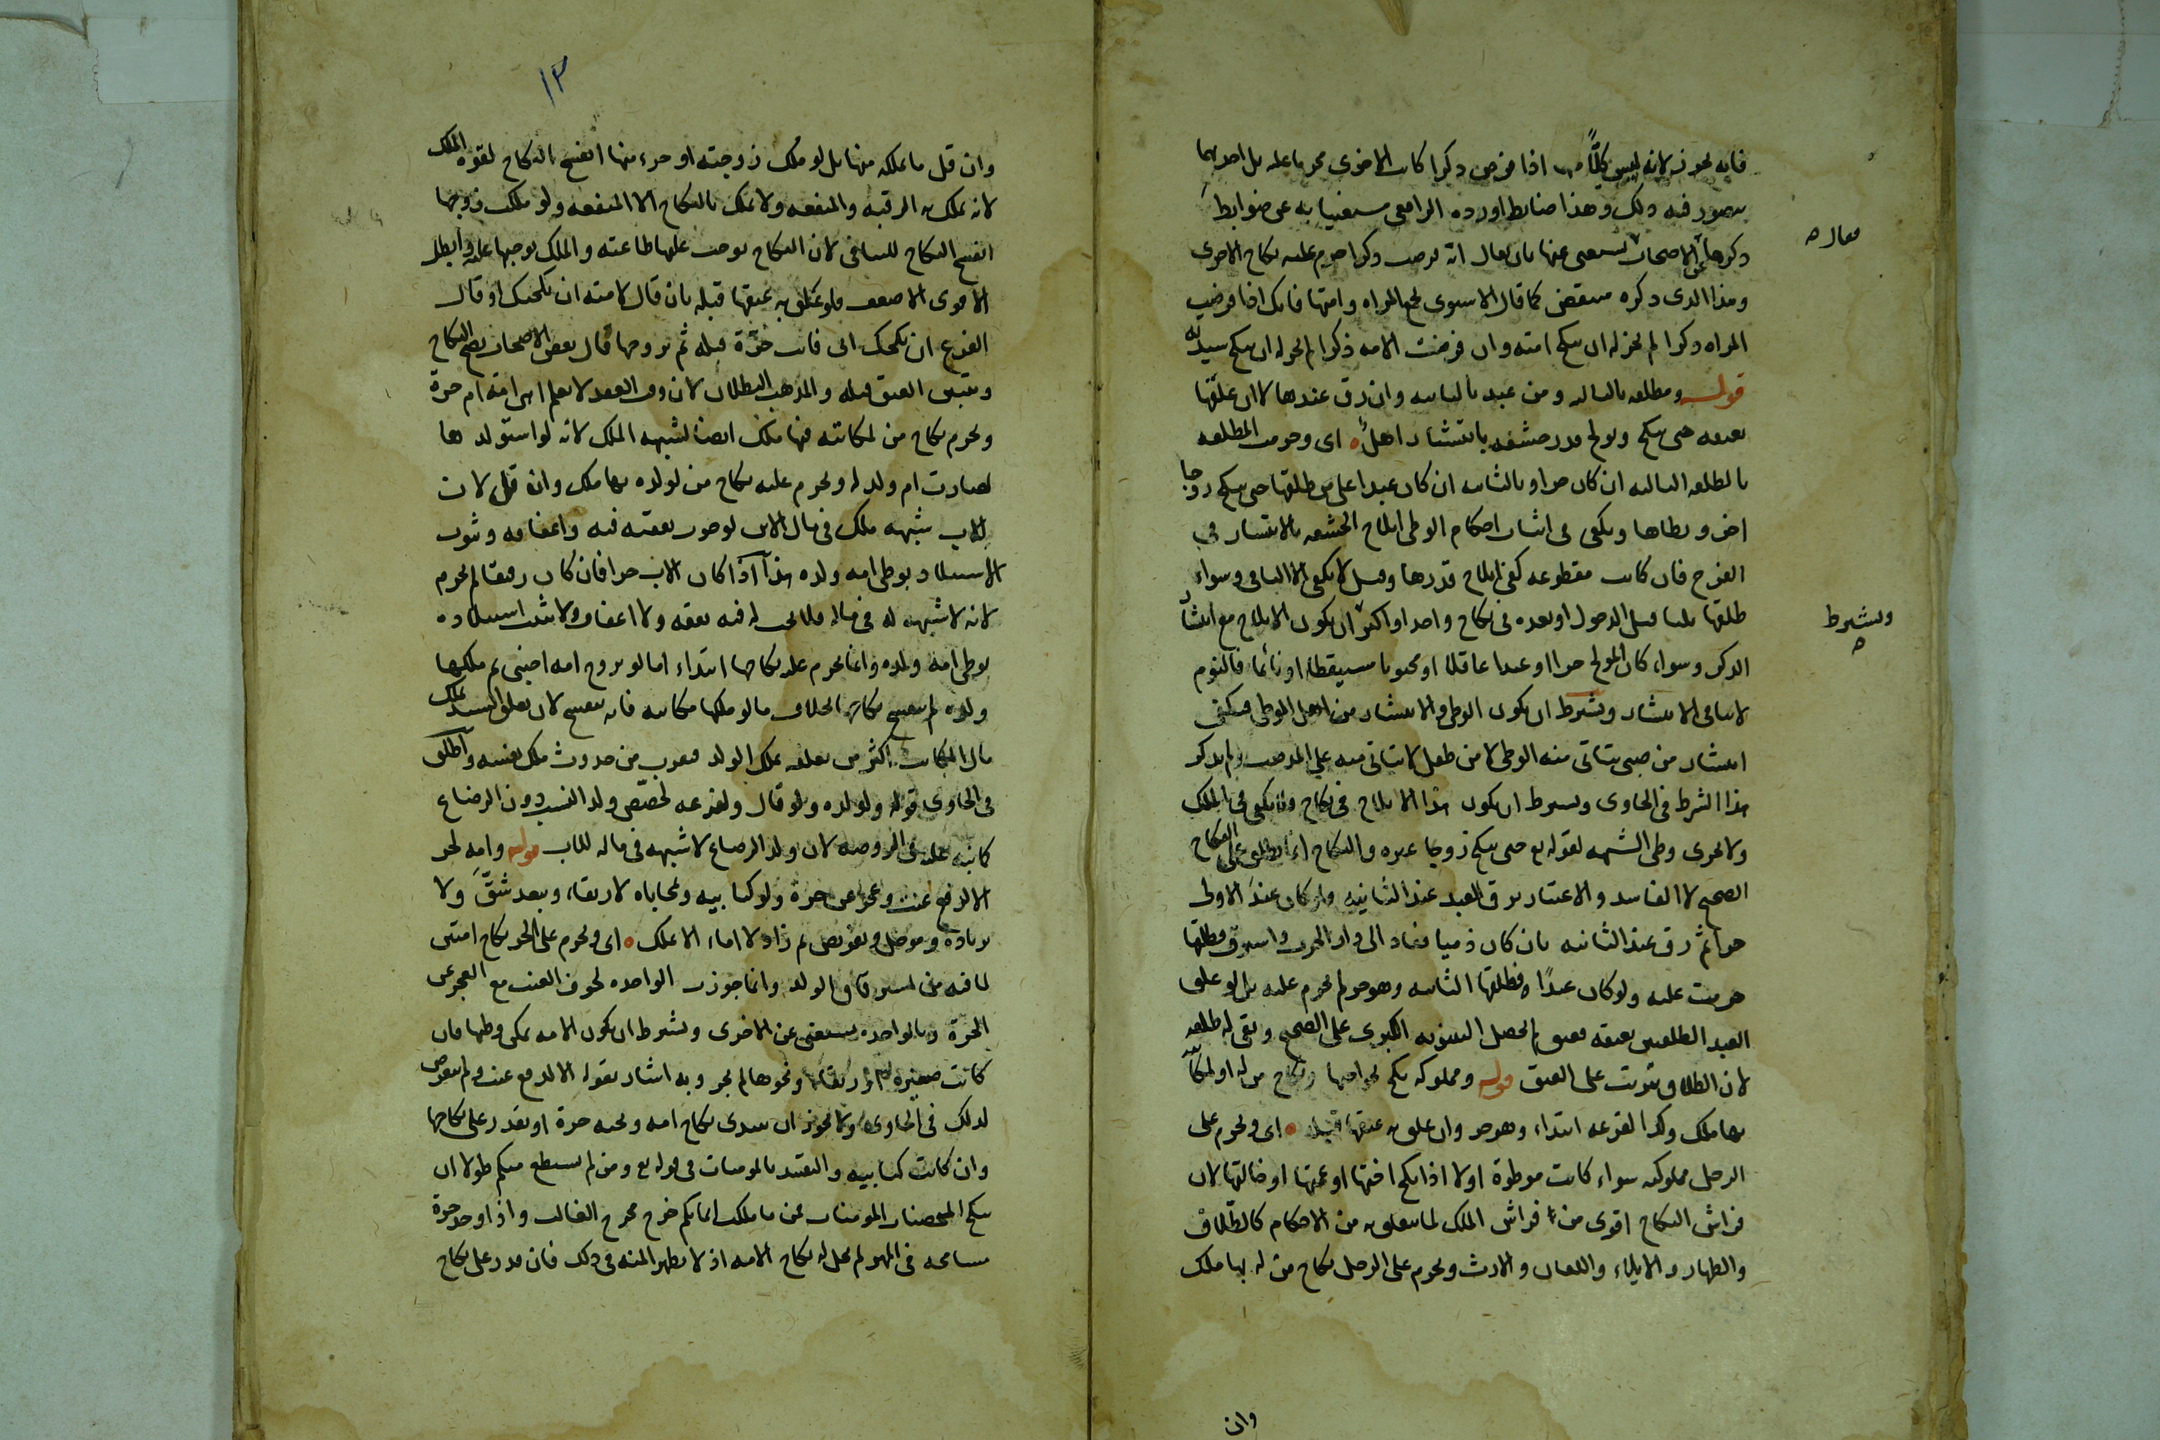 فإنه يجوز لأنه ليس كلًّا منهما اذا فرض ذكرا كانت الاخرى محرما عليه بل احديهما
يتصور فيه ذلك وهذا ضابط اورده الرافعي مستغنيا به عن ضوابط
ذكرها الاصحاب يستغنى عنها بان يقال انه لو فرضت ذكرا حرم عليه نكاح الاخرى
وهذا الذي ذكره منتقض كما قال الاسنوي بجمع المراه وامتها فانك اذا فرضت
المراه ذكرا لم يجز له ان ينكح امته وان فرضت الامه ذكرا لم يجز له ان ينكح سيدته
قوله ومطلقه بالثالثه ومن عبد بالثانيه وان رق عندها لا ان علقها
بعتقه حتى ينكح ويولج قدر حشفه بانتشار اهلٌ اي وحرمت المطلقه
بالطلقه الثالثه ان كان حرا وبالثانيه ان كان عبدا على من طلقها حتى ينكح زوجا
اخر ويطاها ويكفي في اثبات احكام الوطي ايلاج الحشفه بالانتشار في
الفرج فان كانت مقطوعه كفى ايلاج قدرها وقيل لا يكفي الا الباقي وسواء
طلقها ثلثا قبل الدخول او بعده في نكاح واحد او اكثر ان يكون الايلاج مع انتشار
الذكر وسواء كان المولج حرا او عبدا عاقلا او مجنونا مستيقظا او نائما فالنوم
لا ينافي الانتشار ويشترط ان يكون الوطي والانتشار من اهل الوطي فيكفي
انتشار من صبي يتاتى منه الوطي لا من طفل لا يتاتى منه على المذهب ولم يذكر
هذا الشرط في الحاوي ويشترط ان يكون هذا الايلاج في نكاح ولا يكفي في الملك
ولا يجزي وطي الشبهه لقوله تع حتى ينكح زوجا غيره والنكاح انما يطلق على النكاح
الصحيح لا الفاسد والاعتبار برق العبد عند الثانيه وان كان عند الاولى
حرا ثم رق عند الثانيه بان كان ذميا فعاد الى دار الحرب واسترق فطلقها
حرمت عليه ولو كان عبدًا وطلقها الثانيه وهو حر لم يحرم عليه بل لو علق
العبد الطلقتين بعتقه فعتق لم يحصل البينونه الكبرى على الصحيح وبقي له طلقه
لان الطلاق يترتب على العتق قوله ومملوكه بنكح نحو اختها ونكاح من له او لمكاتبه
بها ملك وكذا لفرعه ابتداء وهو حر وان علق به عتقها قبله اي ويحرم على
الرجل مملوكته سواء كانت موطوة او لا اذا نكح اختها او عمتها او خالتها لان
فراش النكاح اقوى من فراش الملك لما يتعلق به من الاحكام كالطلاق
والظهار والايلاء واللعان والارث ويحرم على الرجل نكاح من له بها ملك
يقال
ويشترط
وان
١٣
وان قل ما يملكه منها بل لو ملك زوجته او جزء منها انفسخ النكاح لقوة الملك
لانه يملك به الرقبه والمنفعه ولا يملك بالنكاح الا المنفعه ولو ملكت زوجها
انفسخ النكاح للتنافي لان النكاح يوجب عليها طاعته والملك يوجبها عليه وابطل
الاقوى الاضعف ولو علق به عتقها قبله بان قال لامته ان نكحتك او قال
الفرع ان نكحتك اي فانت حُرّة قبله ثم تزوجها قال بعض الاصحاب يصح النكاح
ويتبين العتق قبله والمذهب البطلان لان وقت العقد لا يعلم اهي امة ام حرة
ويحرم نكاح من لمكاتبه فيها ملك ايضا لشبهه الملك لانه لو استولدها
لصارت ام ولد له ويحرم عليه نكاح من لولده بها ملك وان قل لان
للاب شبهه ملك في مال الابن لوجوب نفقته فيه واعفافه وثبوت
الاستيلاد بوطي امه ولده هذا اذا كان الاب حرا فان كان رقيقا لم يحرم
لانه لا شبهه له في ماله فلا يجب له فيه نفقه ولا اعفاف ولا يثبت استيلاده
بوطي امة ولده وانما يحرم عليه نكاحها ابتداء اما لو تزوج امه اجنبي ثم ملكها
ولده لم ينفسخ نكاحه بخلاف ما لو ملكها مكاتبه فانه ينفسخ لان تعلق السيد بملك
مال المكاتب اكثر من تعلقه بملك الولد فيقرب من حدوث ملك نفسه واطلق
في الحاوي قوله ولولده ولو قال ولفرعه لخصص ولد النسب دون الرضاع
كما نبه عليه في الروضه لان ولد الرضاع لا شبهه في ماله للاب قوله وامه لحر
الا لدفع عنت وعجز عن حرة ولو كتابيه ومحاباه لا رتقاء وبعد شقّ ولا
بزيادة وموجل وتفويض ثم زاد لا اماء الا بملك اي ويحرم على الحر نكاح امتين
لما فيه من استرقاق الولد وانما جوزت الواحده لخوف العنت مع العجز عن
الحرة وبالواحده يستغنى عن الاخرى ويشترط ان يكون الامه يمكن وطيها فان
كانت صغيره او رتقاء ونحوها لم يجز وبه اشار بقوله الا لدفع عنت ولم يتعرض
لذلك في الحاوي ولا يجوز ان يبتدى نكاح امه وتحته حرة او يقدر على نكاحها
وان كانت كتابيه والتقييد بالمومنات في قوله تع ومن لم يستطع منكم طولا ان
ينكح المحصنات المومنات فمن ما ملكت ايمانكم خرج مخرج الغالب واذا وجد حرة
مسامحه في المهر لم يحل له نكاح الامه اذ لا تظهر المنه في ذلك فان قدر على نكاح